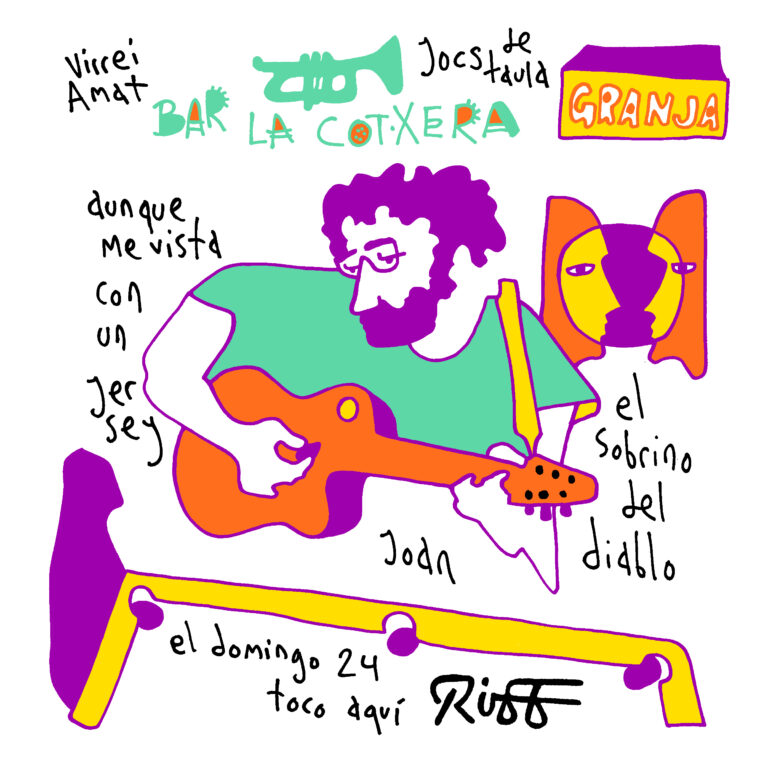 Virrei
Amat
Jocs de
taula
BAR LA COTXERA
GRANJA
aunque
me vista
con
un
Jer
sey
el
sobrino
del
diablo
Joan
el domingo 24
toco aquí
Riff